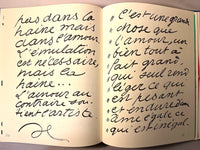 pas dans la
haine mais
dans l'amour
l'émulation
est nécessaire
mais la
haine...
l'amour au
contraire sou-
tient l'artiste
C'est une grande
chose que
l'amour, un
bien tout à
fait grand
qui seul rend
léger ce qui
est pesant
et endure d'une
âme égale ce
qui est inégal.